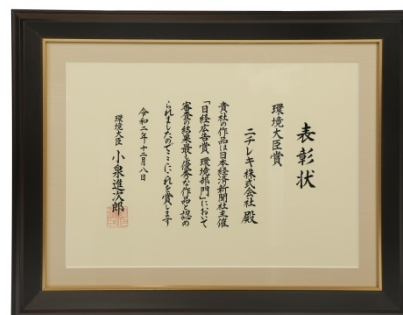 表彰状
環境大臣賞
ニチレキ株式会社 殿
貴社の作品は日本経済新聞社主催
「日経広告賞 環境部門」において
審査の結果最も優秀な作品と認め
られましたのでここにこれを賞します
令和二年十二月八日
環境大臣 小泉進次郎